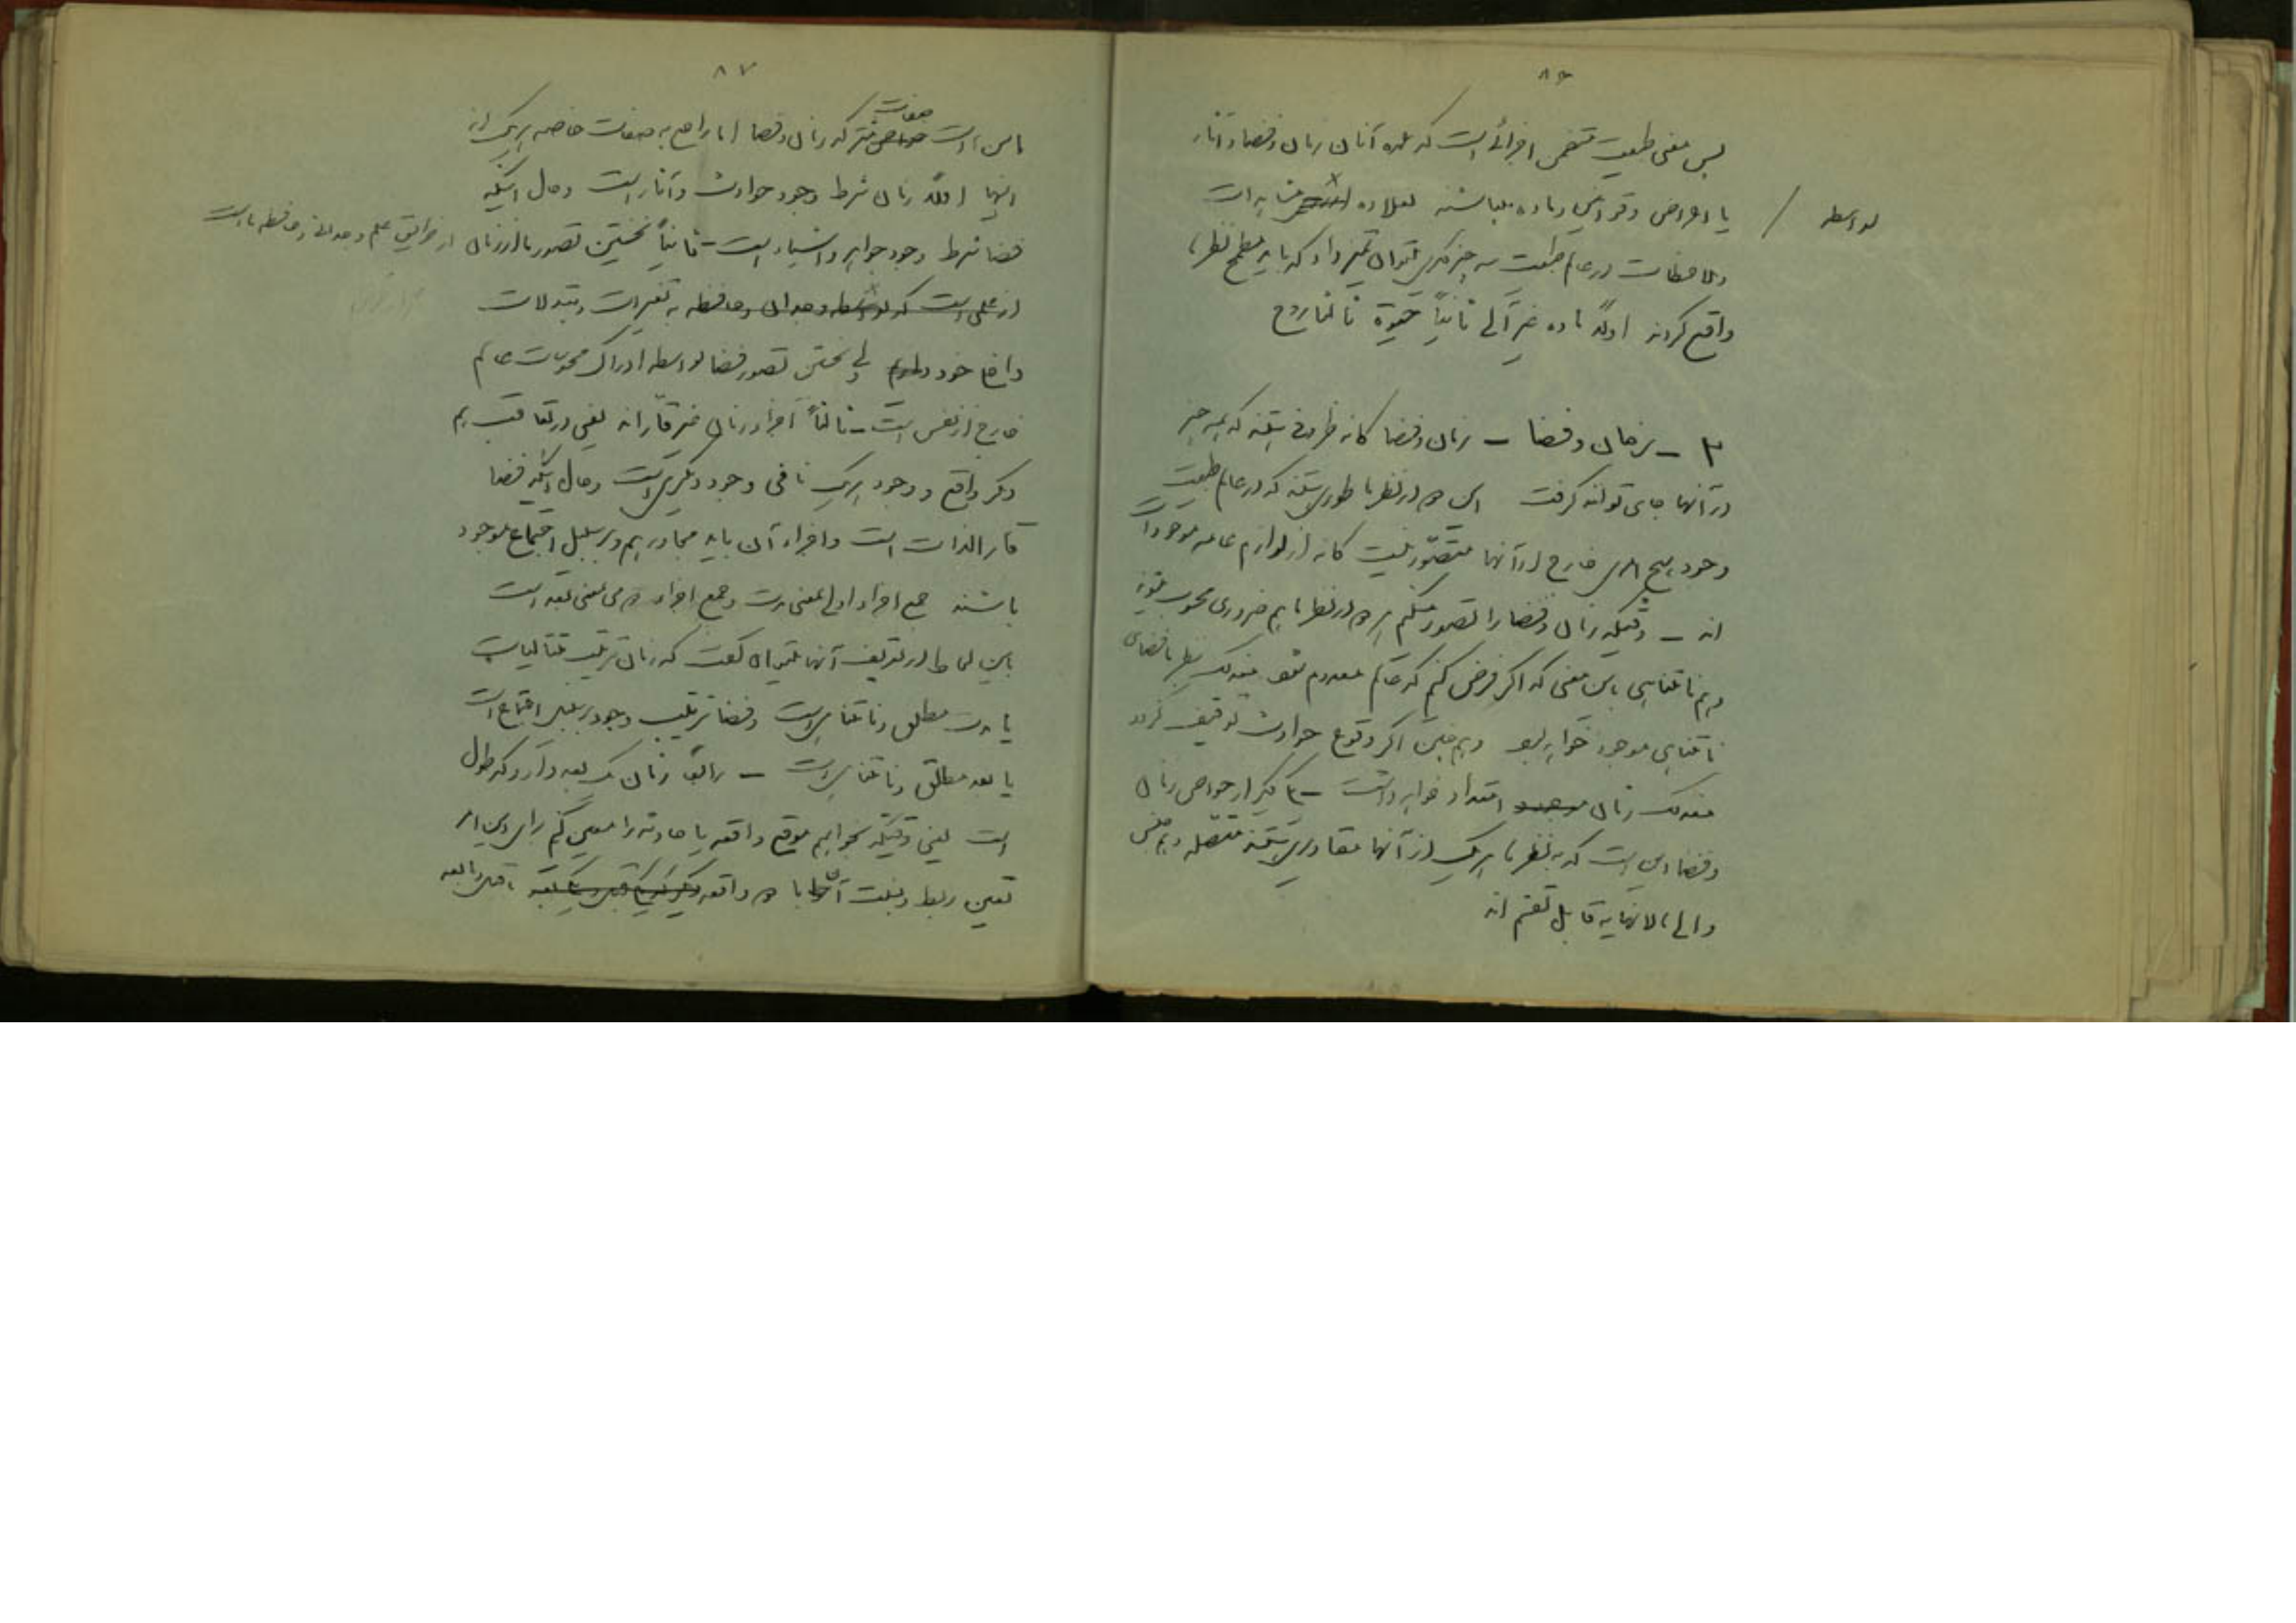 ۸۶
پس معنی طبیعت متضمن اجزائی است که عمده آنان زمان و فضا و آثار
یا اعراض و قوا و ماده میباشند بعلاوه مشاهدات
بواسطه
و ملاحظات در عالم طبیعت سه چیز دیگر میتوان تمیز داد که باید مطمح نظر
واقع گردند اولاً ماده غیر آلی ثانیاً حیوة ثالثا روح
۲ – زمان و فضا – زمان و فضا کانه ظروفی هستند که همه چیز
در آنها جای توانند گرفت این دو در نظر ما طوری هستند که در عالم طبیعت
وجود هیچ امری خارج از آنها متصور نیست کانه از لوازم عامه موجودات
اند – وقتیکه زمان و فضا را تصور میکنیم هر دو در نظر ما هم ضروری محسوب میشوند
و هم نامتناهی باین معنی که اگر فرض کنیم که عالم معدوم شود معذلک فضای
نامتناهی موجود خواهد بود و همچنین اگر وقوع حوادث توقیف گردد
معذلک زمان امتداد خواهد داشت – یکی دیگر از خواص زمان
و فضا این است که به نظر ما هر یک از آنها مقادیری هستند متصله و هم جنس
و الی مالانهایه قابل تقسیم اند
۸۷
این است صفات مشترکه زمان و فضا اما راجع به صفات خاصه هر یک از
اینها اولاً زمان شرط وجود حوادث و آثار است و حال اینکه
فضا شرط وجود جواهر و اشیاء است – ثانیاً نخستین تصور ما از زمان از طریق علم وجدانی و حافظه ما است
از علمی است که بواسطه وجدان و حافظه به تغییرات و تبدلات
داخلی خود داریم ولی نخستین تصور فضا بواسطه ادراک محسوسات عالم
خارج از نفس است – ثالثاً اجزاء زمان غیر قارّ اند یعنی در تعاقب هم
دیگر واقع و وجود هر یک نافی وجود دیگری است و حال اینکه فضا
قار الذات است و اجزاء آن باید مجاور هم و بر سبیل اجتماع موجود
باشند جمع اجزاء اولی یعنی مدت و جمع اجزاء دومی یعنی بعد است
باین لحاظ در تعریف آنها میتوان گفت که زمان ترتیب متتالیات
یا مدت مطلق و نامتناهی است و فضا ترتیب وجود بر سبیل اجتماع است
یا بعد مطلق و نامتناهی است – رابعاً زمان یک بعد دارد که طول
است یعنی وقتیکه بخواهیم موقع واقعه یا حادثه را معین کنیم برای این امر
تعیین ربط و نسبت آن با دو واقعه ماقبل و مابعد